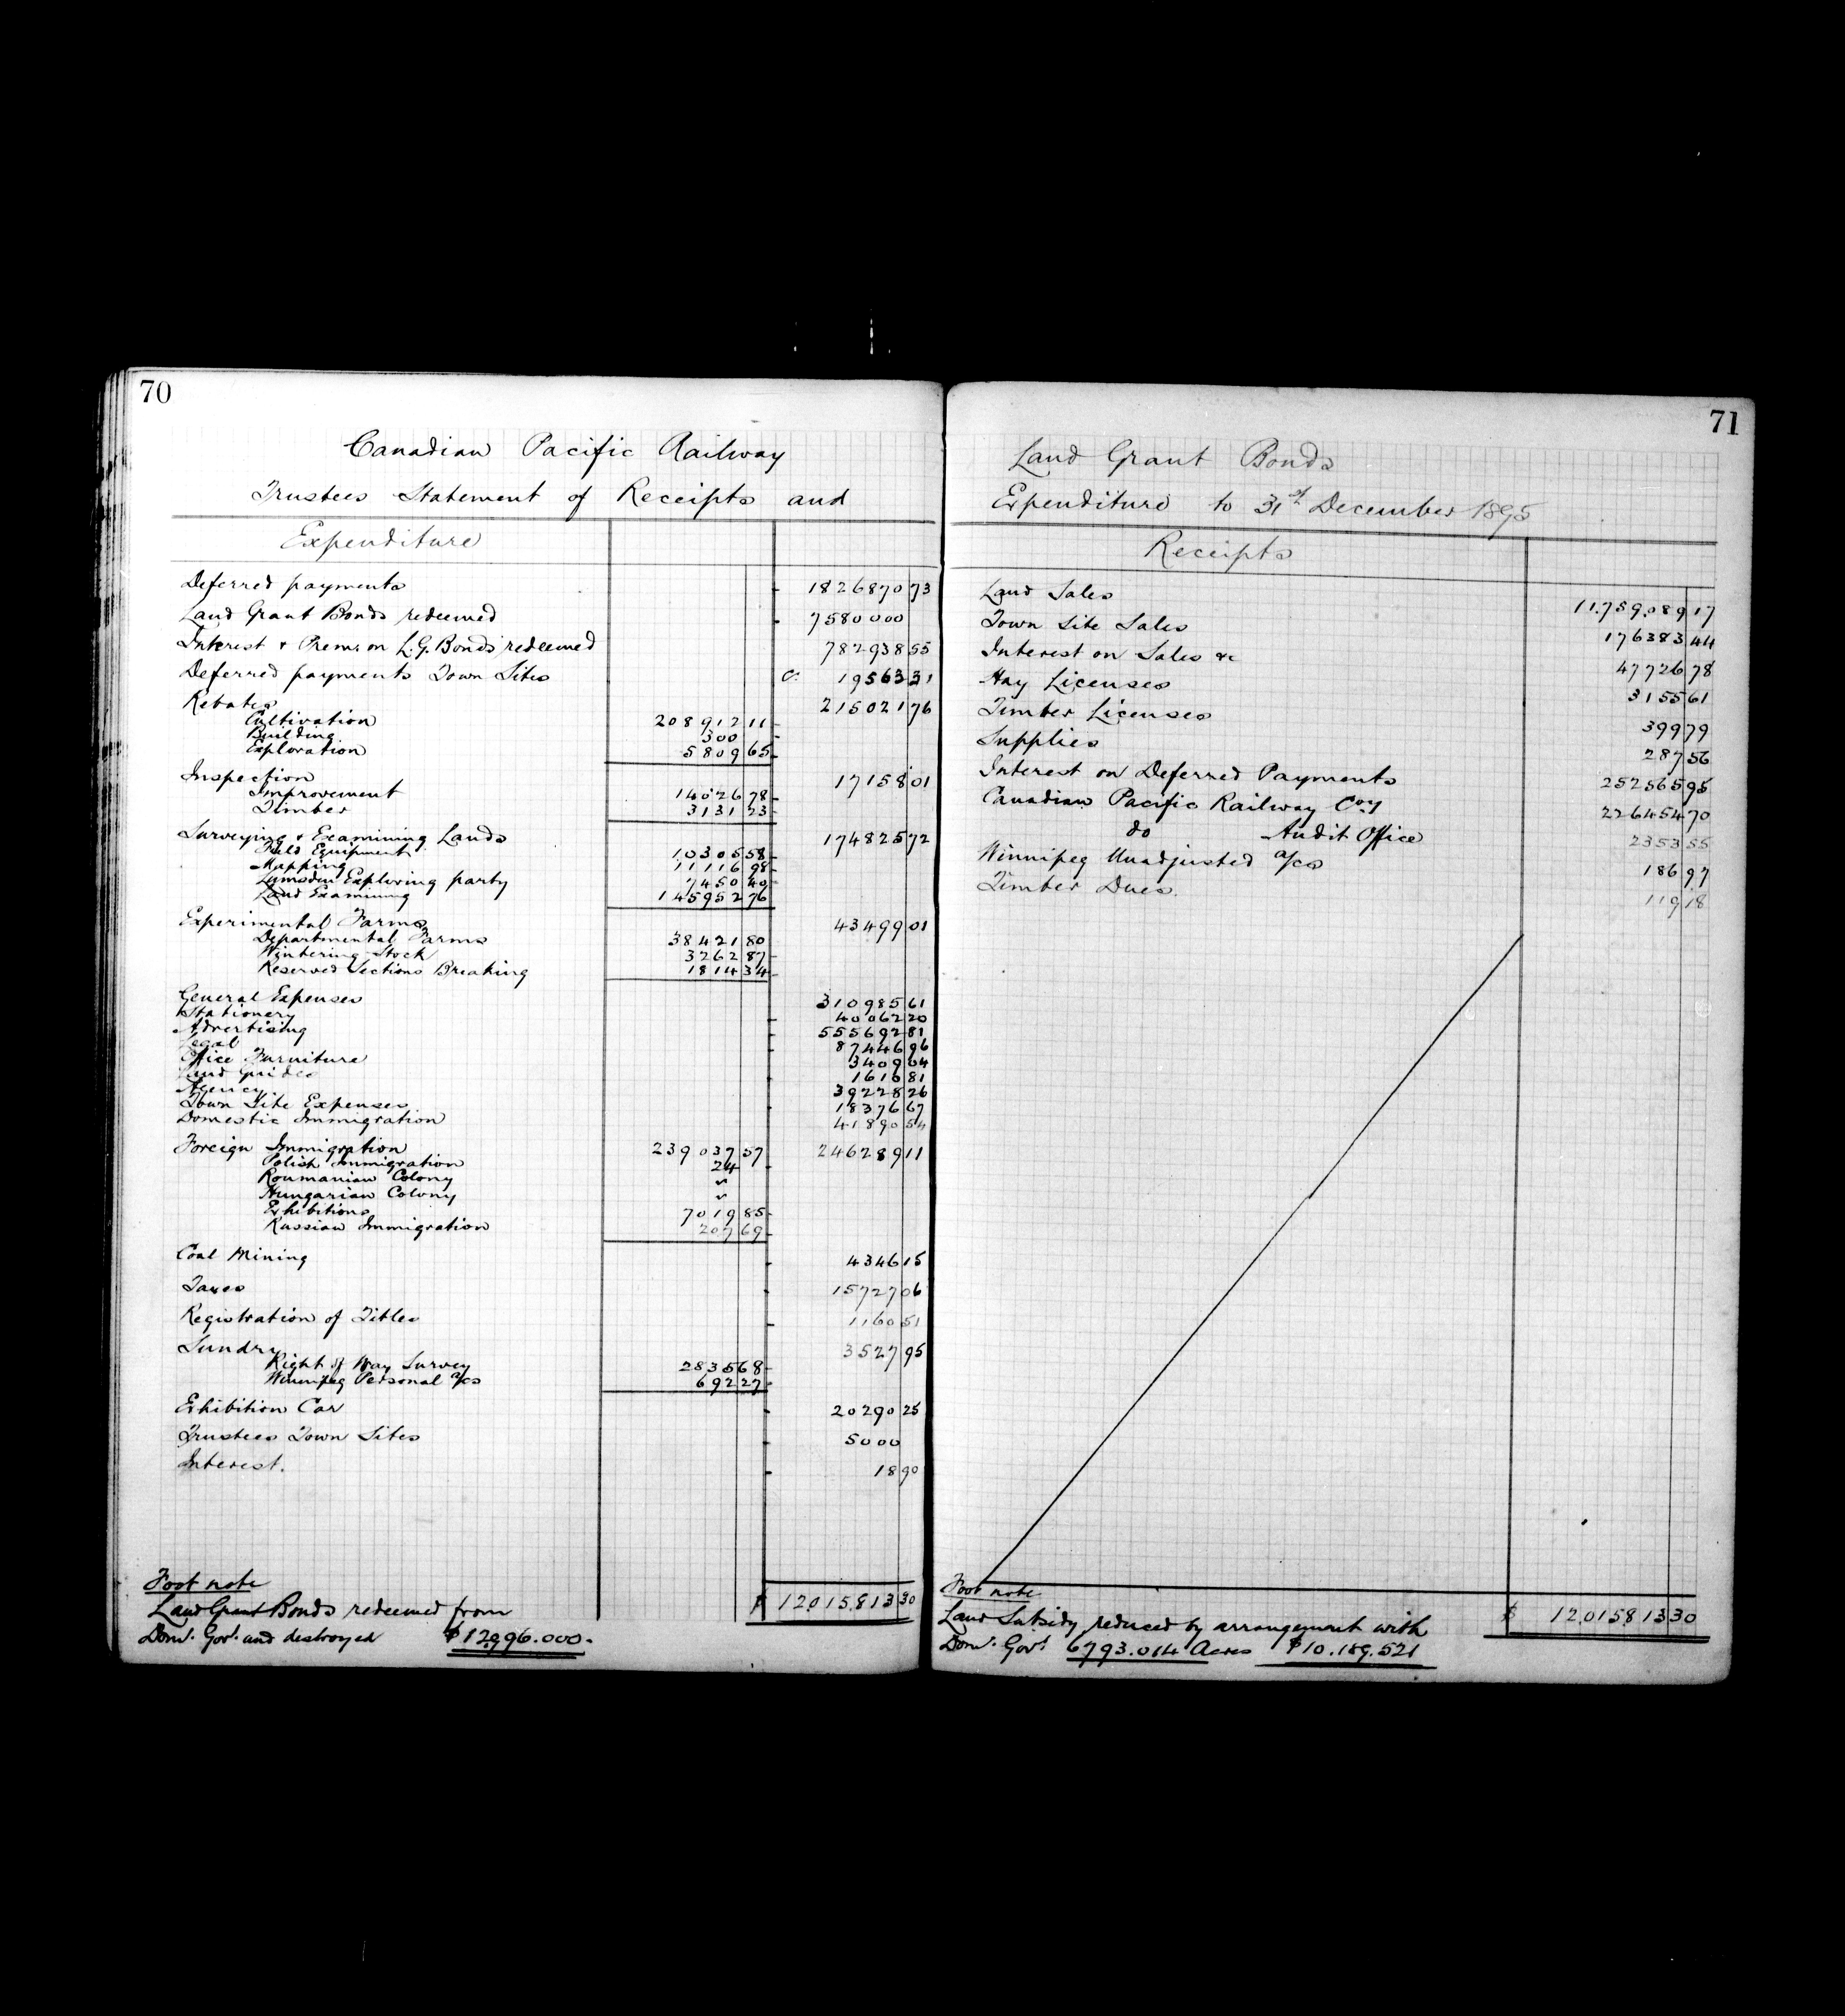 70
Canadian Pacific Railway
Trustees Statement of Receipts and
Expenditure
Deferred payments 1826870 73
Land Grant Bonds redeemed 7580000
Interest & Prem: on L.G. Bonds redeemed 782938 55
Deferred payments Town Sites Cr. 19563 31
Rebates 215021 76
Cultivation 208912 11
Building 300
Exploration 5809 65
Inspection 17158 01
Improvement 14026 78
Timber 3131 23
Surveying & Examining Lands 174825 72
Field Equipment 10305 58
Mapping 11116 98
Lumsden Exploring party 7450 40
Land Examining 145952 76
Experimental Farms 43499 01
Departmental Farms 38421 80
Wintering Stock 3262 87
Reserved Sections Breaking 1814 34
General Expenses 310985 61
Stationery 40062 20
Advertising 555692 81
Legal 87446 96
Office Furniture 3409 04
Land Guides 1616 81
Agency 39228 26
Town Site Expenses 18376 67
Domestic Immigration 41890 54
Foreign Immigration 239037 57 246289 11
Polish Immigration 24
Roumanian Colony
Hungarian Colony
Exhibitions 7019 85
Russian Immigration 207 69
Coal Mining 4346 15
Taxes 15727 06
Registration of Titles 1160 51
Sundry 3527 95
Right of Way Survey 2835 68
Winnipeg Personal a/cs 692 27
Exhibition Car 20290 25
Trustees Town Sites 5000
Interest. 18 90
$ 12,015,813 30
Foot note
Land Grant Bonds redeemed from
Domn. Govt. and destroyed $12,996.000.
71
Land Grant Bonds
Expenditure to 31st December 1895
Receipts
Land Sales 11,759,089 17
Town Site Sales 176383 44
Interest on Sales &c 47726 78
Hay Licenses 3155 61
Timber Licenses 399 79
Supplies 287 56
Interest on Deferred Payments 252565 95
Canadian Pacific Railway Coy 226454 70
do Audit Office 2353 55
Winnipeg Unadjusted a/cs 186 97
Timber Dues. 119 18
$ 12,015813 30
Foot note
Land Subsidy reduced by arrangement with
Domn. Govt. 6793.014 Acres $10.189.521